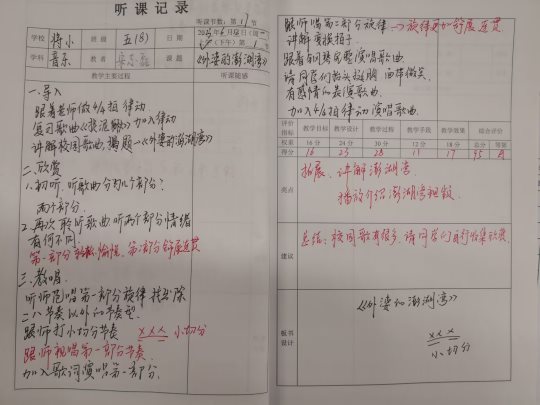 听课记录
听课节数：第17节
学校 将小 班级 五(8) 日期
(下午) 第1节
学科 音乐 教者 课题 《外婆的澎湖湾》
教学主要过程 听课随感
一、导入
跟着老师做4/4拍律动
复习歌曲 加入律动
讲解校园歌曲，揭题→《外婆的澎湖湾》
二、欣赏
1.初听，听歌曲分为几个部分？
两个部分
2.再次聆听歌曲，听两个部分情绪
有何不同
第一部分轻松、愉悦，第二部分舒展连贯
三、教唱
听师范唱第一部分旋律 找出除
二八节奏以外的节奏型
跟师打小切分节奏 XXX 小切分
跟师视唱第一部分节奏
加入歌词演唱第一部分
跟师唱第二部分旋律→旋律更加舒展连贯
讲解变换拍子
跟着钢琴完整演唱歌曲
请同学们抬头挺胸 面带微笑
有感情的表演歌曲
加入4/4拍律动演唱歌曲
评价指标 教学目标 教学设计 教学过程 教学手段 教学效果 综合评分
权重 16分 24分 30分 12分 18分 总分 等第
得分 16 23 28 11 17 95
亮点
拓展、讲解澎湖湾
播放介绍澎湖湾视频
建议
总结：校园歌有很多，请同学们自行收集欣赏
板书设计
《外婆的澎湖湾》
XXX
小切分